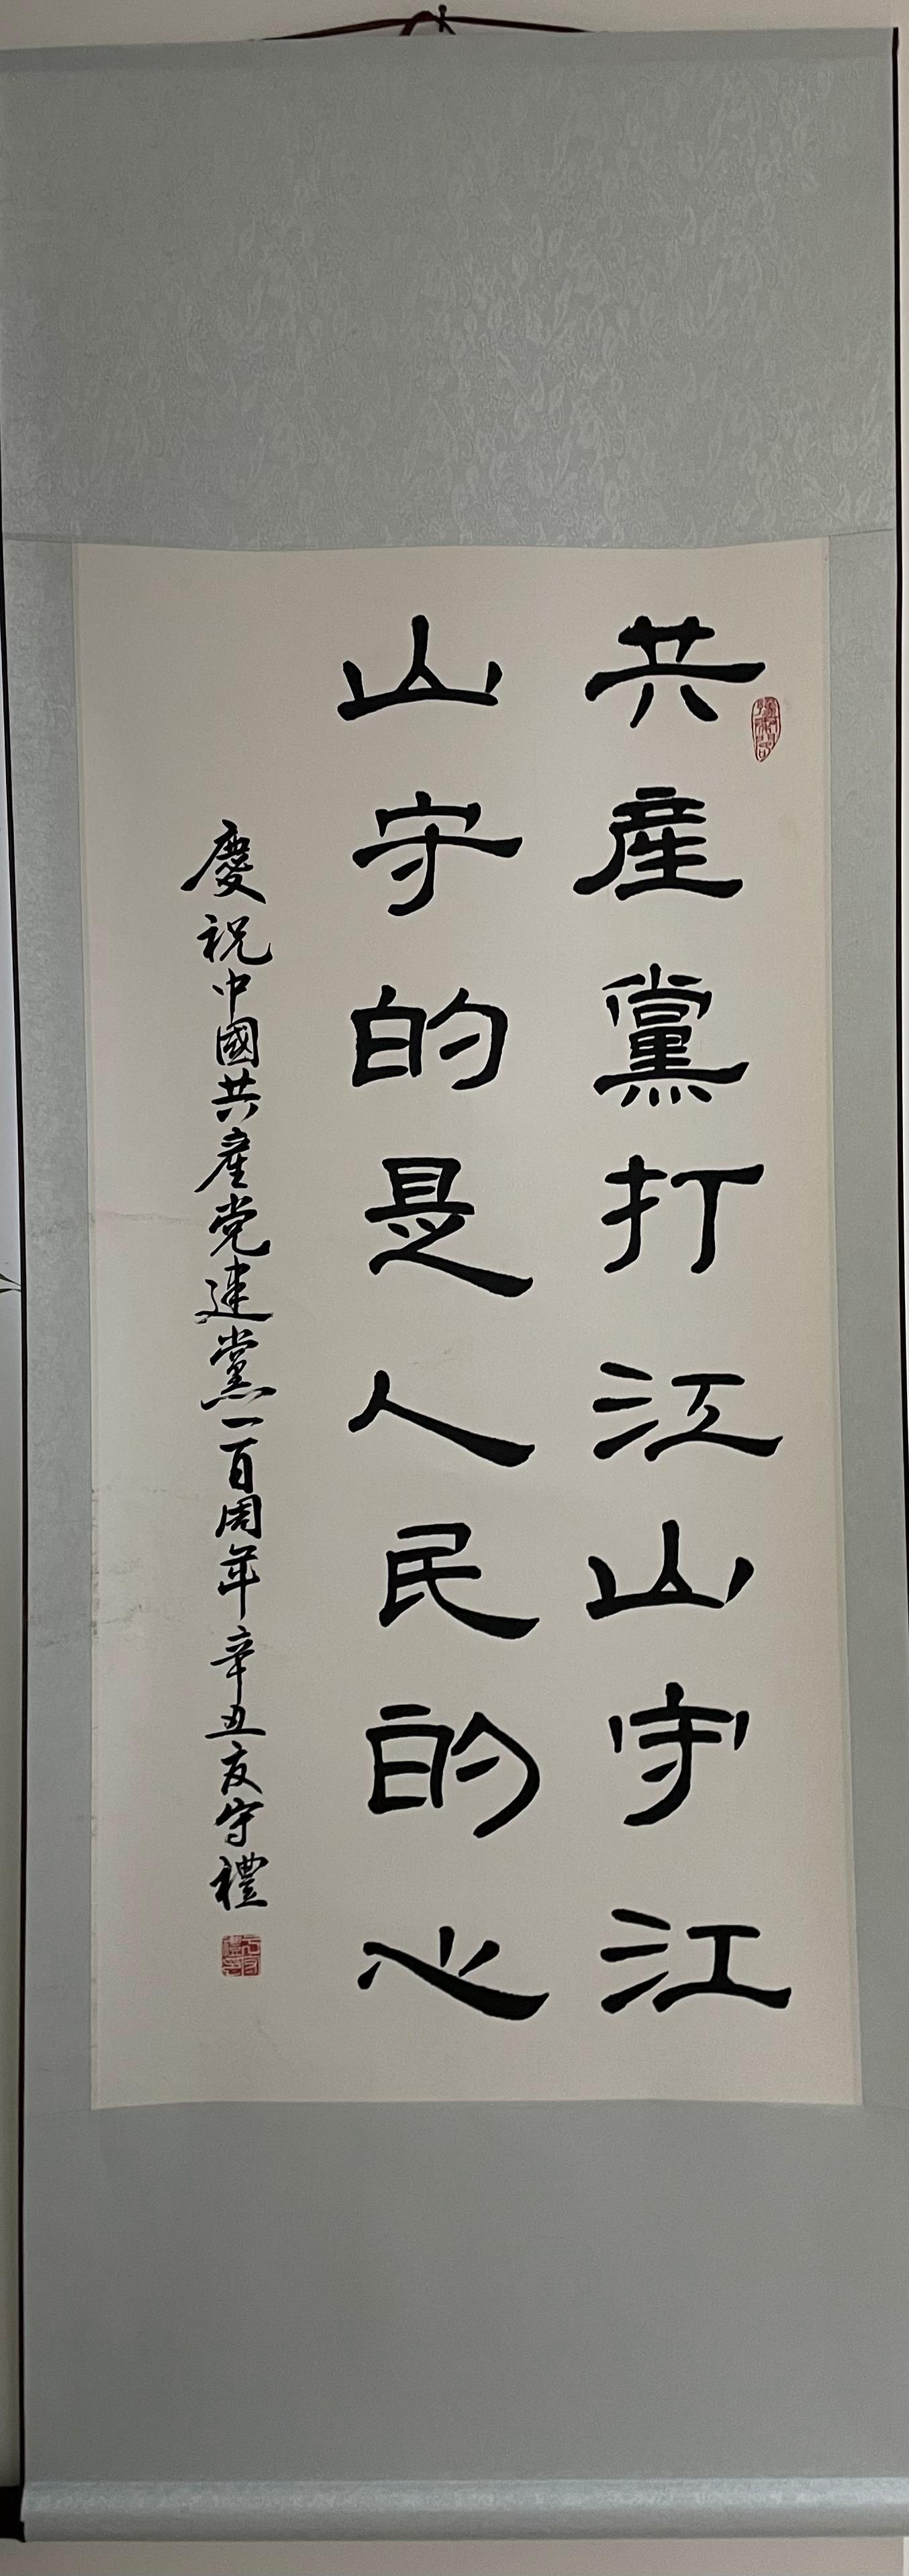 共産黨打江山守江
山守的是人民的心
慶祝中國共產党建黨一百周年辛丑友守禮